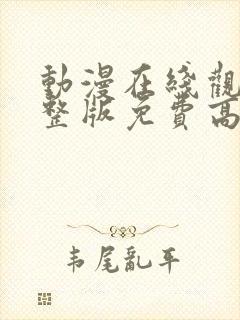 動漫在綫觀
整版免費高
韦尾亂平